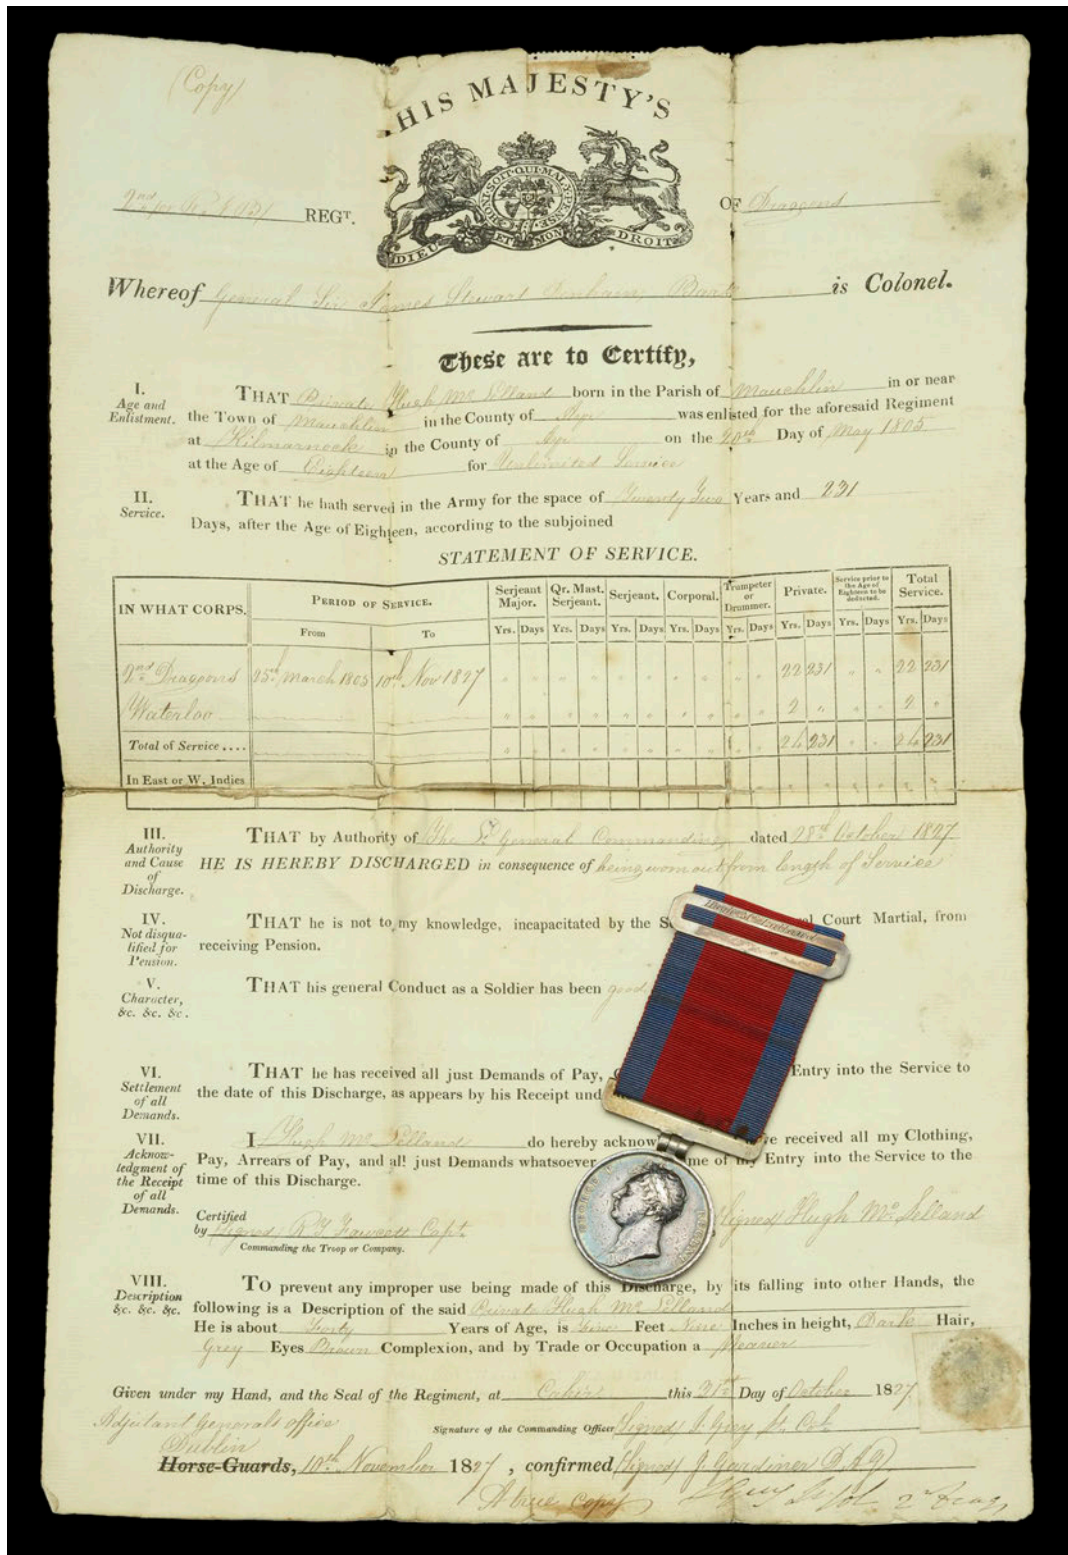 (Copy)
HIS MAJESTY'S
HONI·SOIT·QUI·MAL·Y·PENSE
DIEU ET MON DROIT
2nd or REGT. OF Dragoons
Whereof General Sir James Stewart Denham, Bart is Colonel.
These are to Certify,
I.
Age and
Enlistment.
THAT Private Hugh Mc Lelland born in the Parish of Mauchlin in or near
the Town of Mauchlin in the County of Ayr was enlisted for the aforesaid Regiment
at Kilmarnock in the County of Ayr on the 20th Day of May 1805
at the Age of Eighteen for Unlimited Service
II.
Service.
THAT he hath served in the Army for the space of Twenty Two Years and 231
Days, after the Age of Eighteen, according to the subjoined
STATEMENT OF SERVICE.
IN WHAT CORPS. PERIOD OF SERVICE. Serjeant Major. Qr. Mast. Serjeant. Serjeant. Corporal. Trumpeter or Drummer. Private. Service prior to the Age of Eighteen to be deducted. Total Service.
From To Yrs. Days Yrs. Days Yrs. Days Yrs. Days Yrs. Days Yrs. Days Yrs. Days Yrs. Days
2nd Dragoons 25th March 1805 10th Nov 1827 " " " " " " " " " " 22 231 " " 22 231
Waterloo " " " " " " " " " " 2 " " " 2 "
Total of Service .... " " " " " " " " " " 24 231 " " 24 231
In East or W. Indies
III.
Authority
and Cause
of
Discharge.
THAT by Authority of The Lt General Commanding dated 28th October 1827
HE IS HEREBY DISCHARGED in consequence of being worn out from length of Service
IV.
Not disqua-
lified for
Pension.
THAT he is not to my knowledge, incapacitated by the Court Martial, from
receiving Pension.
V.
Character,
&c. &c. &c.
THAT his general Conduct as a Soldier has been good
VI.
Settlement
of all
Demands.
THAT he has received all just Demands of Pay, Entry into the Service to
the date of this Discharge, as appears by his Receipt und
VII.
Acknow-
ledgment of
the Receipt
of all
Demands.
I Hugh Mc Lelland do hereby acknow ve received all my Clothing,
Pay, Arrears of Pay, and all just Demands whatsoever me of my Entry into the Service to the
time of this Discharge.
Certified
by Signed R Y Fawcett Capt.
Commanding the Troop or Company.
Signed Hugh Mc Lelland
VIII.
Description
&c. &c. &c.
TO prevent any improper use being made of this Discharge, by its falling into other Hands, the
following is a Description of the said Private Hugh Mc Lelland
He is about Forty Years of Age, is Five Feet Nine Inches in height, Dark Hair,
Grey Eyes Brown Complexion, and by Trade or Occupation a Weaver
Given under my Hand, and the Seal of the Regiment, at Caher this 21st Day of October 1827
Signature of the Commanding Officer Signed J. Grey Lt. Col.
Adjutant Generals office
Dublin
Horse-Guards, 10th November 1827, confirmed Signed J. Gardiner D.A.G
A true copy Lt Col 2nd Drag